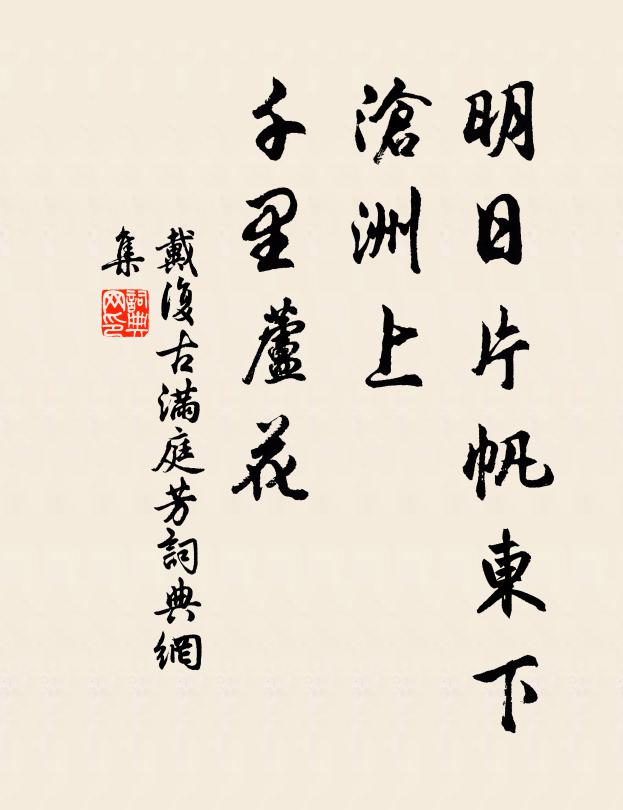 明日片帆東下
滄洲上
千里蘆花
戴復古滿庭芳詞典網
集
詞典网印